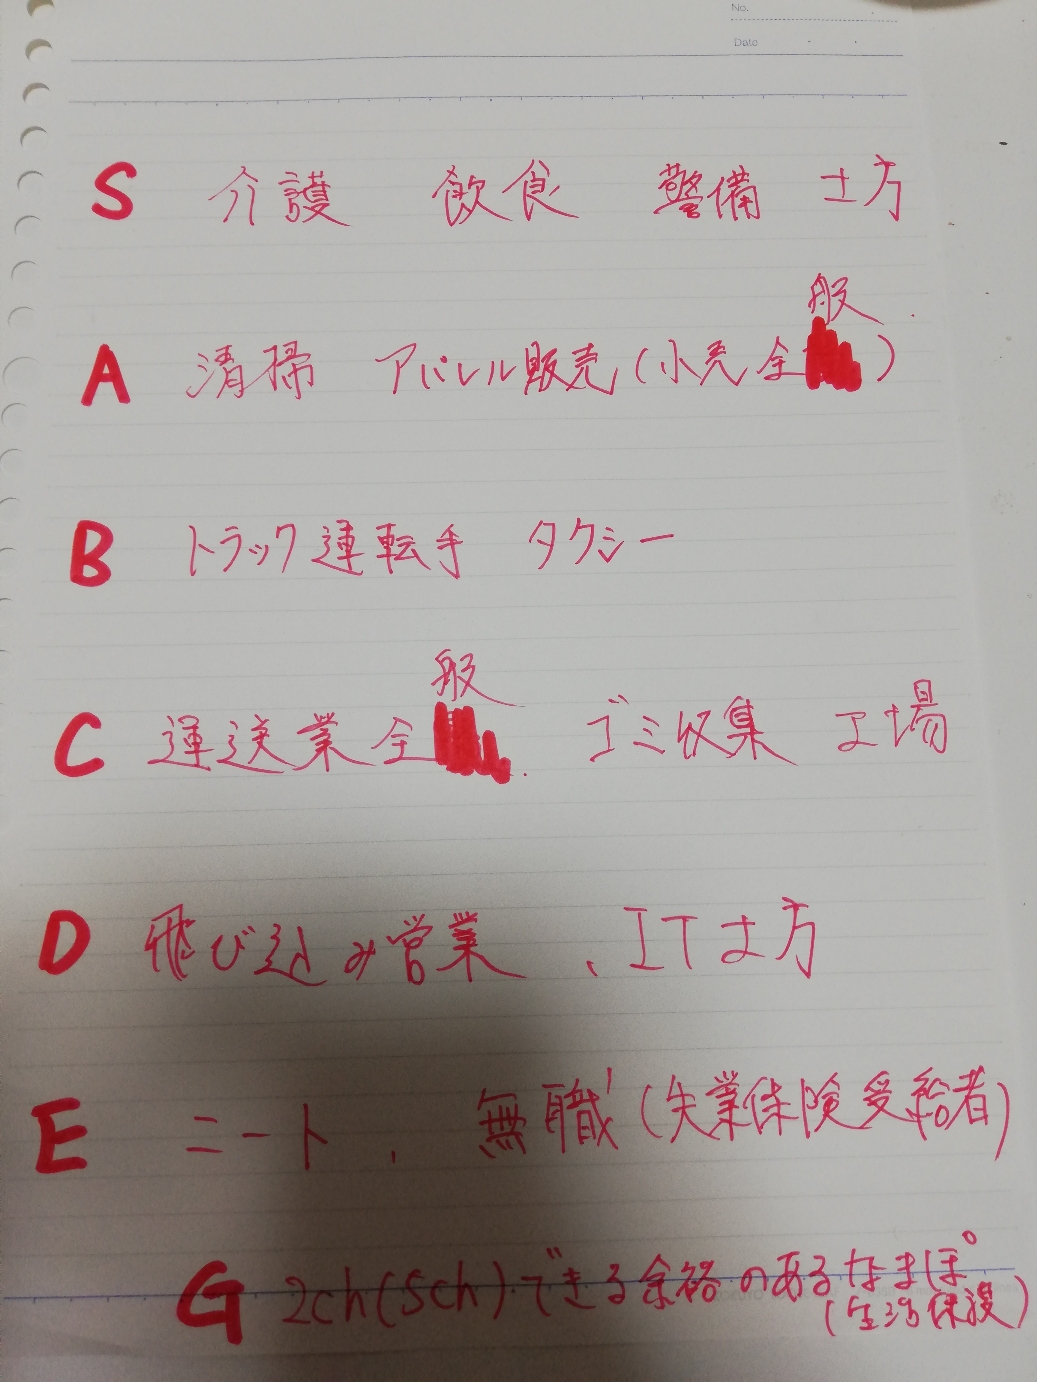 No.
Date
S 介護 飲食 警備 土方
A 清掃 アパレル販売(小売全般)
B トラック運転手 タクシー
C 運送業全般. ゴミ収集 工場
D 飛び込み営業 、IT土方
E ニート . 無職(失業保険受給者)
G 2ch(5ch)できる余裕のあるなまぽ
(生活保護)